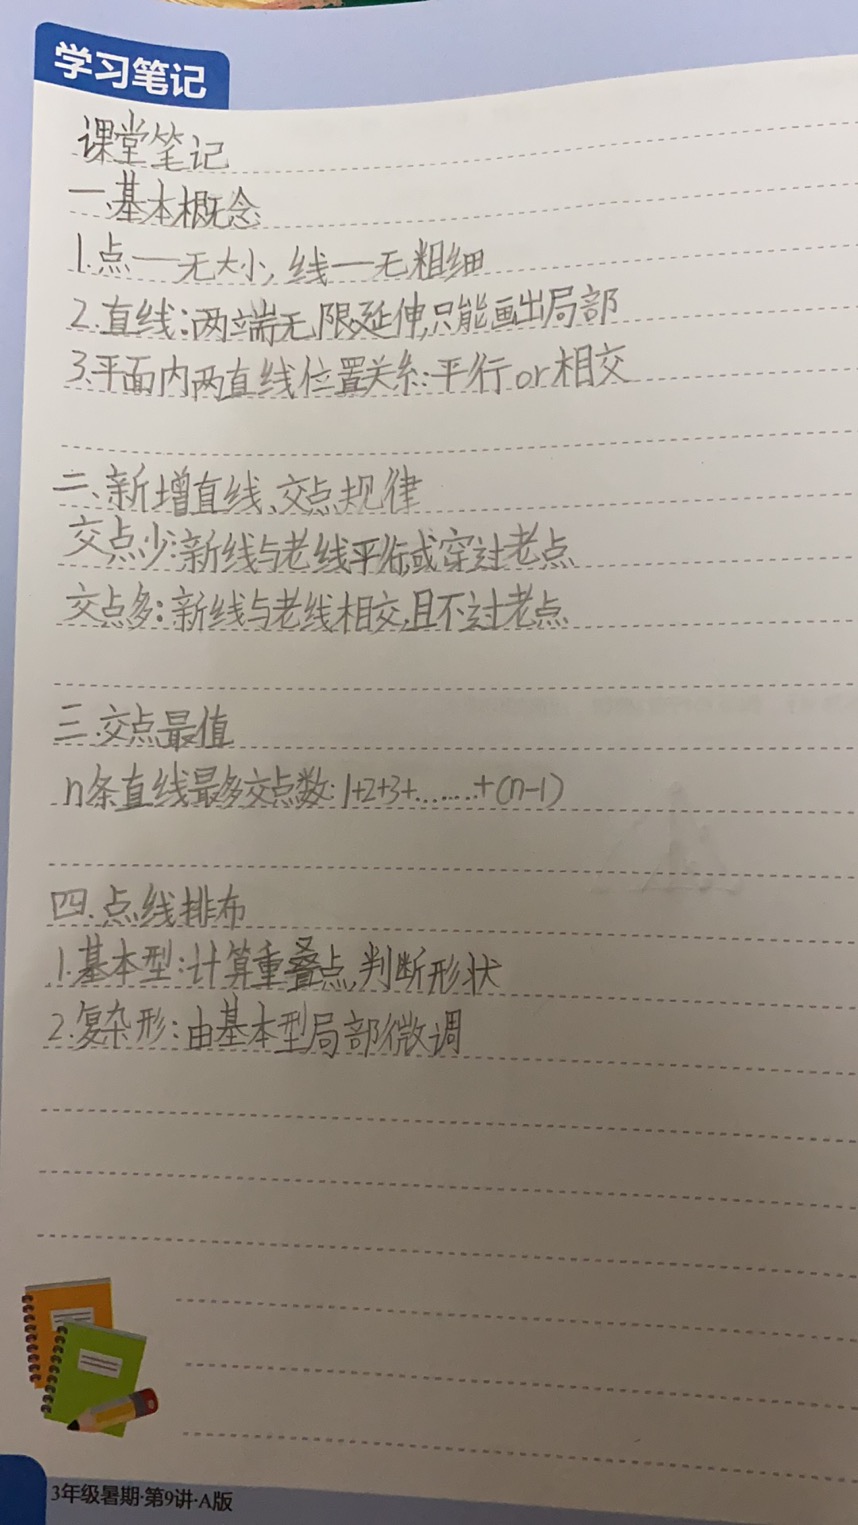 学习笔记
课堂笔记
一.基本概念
1.点——无大小,线—无粗细
2.直线:两端无限延伸,只能画出局部
3.平面内两直线位置关系:平行or相交
二、新增直线、交点规律
交点少:新线与老线平行,或穿过老点
交点多:新线与老线相交,且不过老点
三.交点最值
n条直线最多交点数:1+2+3+.......+(n-1)
四.点线排布
1.基本型:计算重叠点,判断形状
2.复杂形:由基本型局部微调
3年级暑期·第9讲·A版